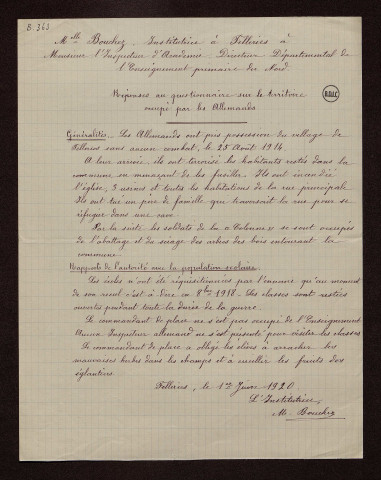 B. 363
Melle Bouchez, Institutrice à Felleries à
Monsieur l'Inspecteur d'Académie Directeur Départemental de
l'Enseignement primaire du Nord
Réponses au questionnaire sur le territoire
occupé par les Allemands
Généralités. Les Allemands ont pris possession du village de
Felleries sans aucun combat, le 25 Août 1914.
A leur arrivée ils ont terrorisé les habitants restés dans la
commune en menaçant de les fusiller. Ils ont incendié
l'église, 3 usines et toutes les habitations de la rue principale
Ils ont tué un père de famille qui traversait la rue pour se
réfugier dans une cave.
Par la suite les soldats de la "Colonne" se sont occupés
de l'abattage et du sciage des arbres des bois entourant la
commune.
Rapports de l'autorité avec la population scolaire
Les écoles n'ont été réquisitionnées par l'ennemi qu'au moment
de son recul c'est à dire en 8bre 1918. Les classes sont restées
ouvertes pendant toute la durée de la guerre.
Le commandant de place ne s'est pas occupé de l'Enseignement
Aucun Inspecteur allemand ne s'est présenté pour visiter les classes
Le commandant de place a obligé les élèves à arracher les
mauvaises herbes dans les champs et à cueillir les fruits des
églantiers.
Felleries, le 1er Juin 1920
L'Institutrice,
M. Bouchez